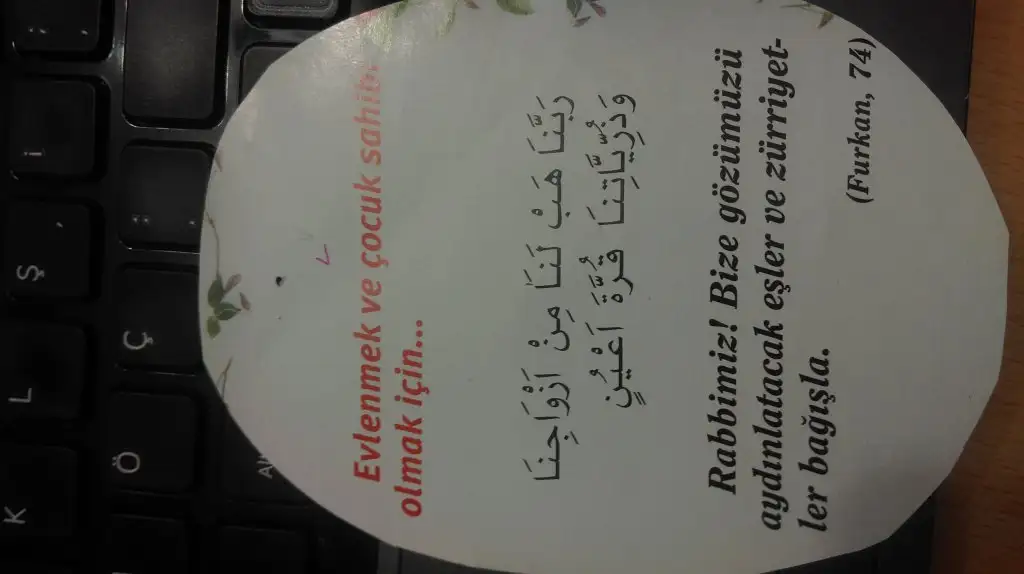 Evlenmek ve çocuk sahibi
olmak için...
رَبَّنَا هَبْ لَنَا مِنْ اَزْوَاجِنَا
وَذُرِّيَّاتِنَا قُرَّةَ اَعْيُنٍ
Rabbimiz! Bize gözümüzü
aydınlatacak eşler ve zürriyet-
ler bağışla.
(Furkan, 74)
K
L
Ş
İ
Ö
Ç
Alt